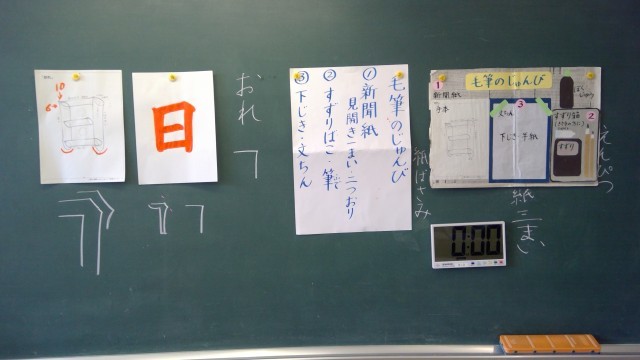 10
6
日
おれ
毛筆のじゅんび
① 新聞紙
見開き一まい・二つおり
② すずりばこ・筆
③ 下じき・文ちん
紙ばさみ
毛筆のじゅんび
1
新聞紙
手本
3
文ちん
下じき・半紙
ぼくじゅう
2
すずり箱
すずり
えんぴつ
紙二まい
0:00